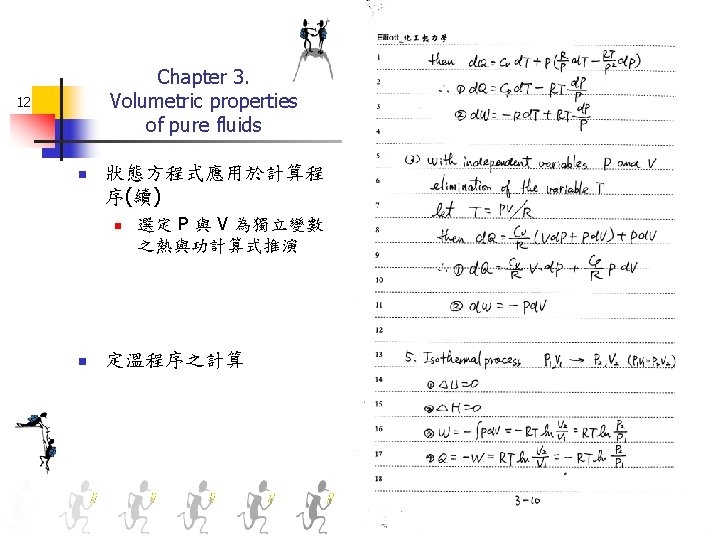 12
Chapter 3.
Volumetric properties
of pure fluids
狀態方程式應用於計算程
序(續)
選定 P 與 V 為獨立變數
之熱與功計算式推演
定溫程序之計算
Elliott_化工熱力學
1 then dQ = CvdT + P(R/P dT - RT/P² dP)
2 ∴ ① dQ = CpdT - RT dP/P
3 ② dW = -RdT + RT dP/P
4
5 (3) with independent variables P and V
6 elimination of the variable T
7 let T = PV/R
8 then dQ = Cv/R (VdP + PdV) + PdV
9 ∴ ① dQ = Cv/R V·dP + Cp/R PdV
10
11 ② dW = -PdV
12
13 5. Isothermal process P₁V₁ → P₂V₂ (P₁V₁=P₂V₂)
14 ① ΔU=0
15 ② ΔH=0
16 ③ W = -∫PdV = -RT ln V₂/V₁ = RT ln P₂/P₁
17 ④ Q = -W = RT ln V₂/V₁ = -RT ln P₂/P₁
18
3-10